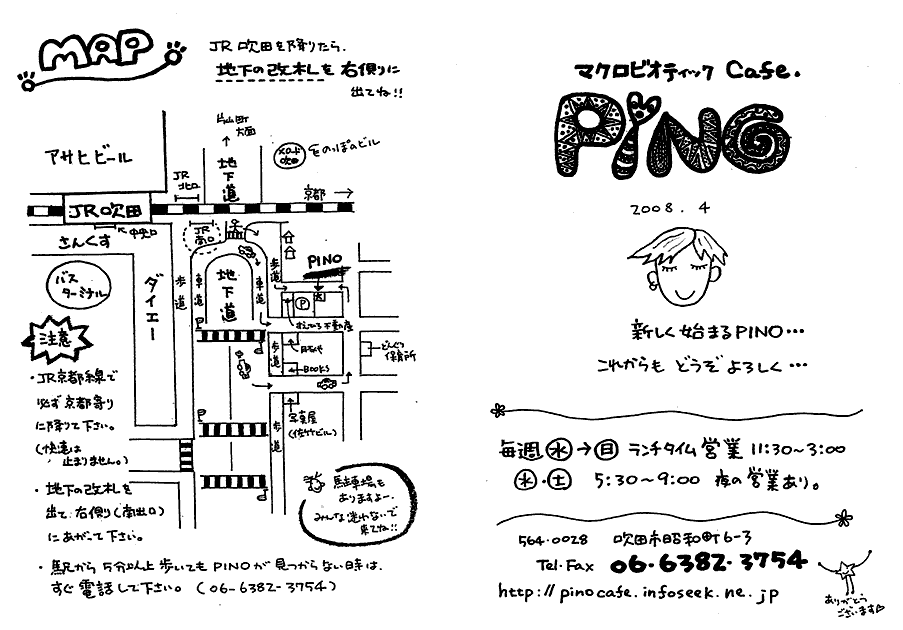 MAP
JR 吹田を降りたら、
地下の改札を 右側に
出てね!!
片山町
方面
アサヒビール
地下道
メロード
吹田
をのっぽのビル
JR
北口
京都 →
JR吹田
中央口
さんくす
JR
南口
バス
ターミナル
ダイエー
歩道
車道
地下道
車道
歩道
PINO
P
すえひろ不動産
歩道
BOOKS
どんぐり
保育所
写真屋
(佐竹ビル)
歩道
注意
・JR京都線で
必ず京都寄り
に降りて下さい。
(快速は
止まりません。)
・地下の改札を
出て、右側り(南出口)
にあがって下さい。
駐車場も
ありますよー。
みんな迷わないで
来てね!!
・駅から 5分以上歩いても PINOが 見つからない時は、
すぐ電話して下さい。 (06-6382-3754)
マクロビオティック Cafe.
PiNO
2008.4
新しく始まるPINO…
これからも どうぞ よろしく…
毎週㊌→㊐ ランチタイム営業 11:30~3:00
㊌・㊏ 5:30~9:00 夜の営業あり。
564-0028 吹田市昭和町6-3
Tel・Fax 06・6382・3754
http://pinocafe.infoseek.ne.jp
ありがとう
ございます